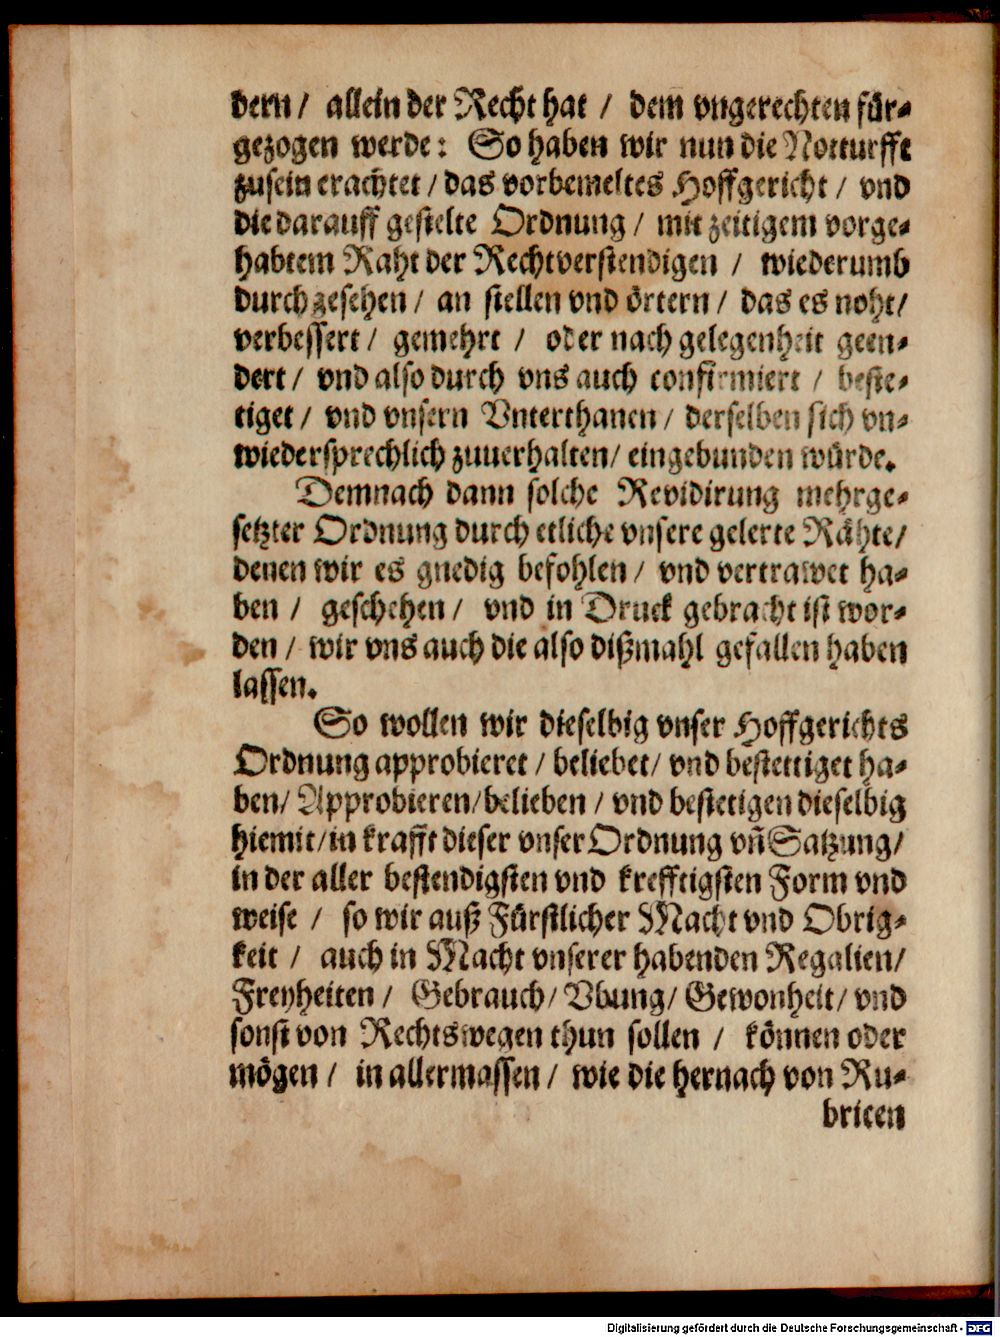 dern / allein der Recht hat / dem vngerechten für-
gezogen werde: So haben wir nun die Notturfft
zusein erachtet / das vorbemeltes Hoffgericht / vnd
die darauff gestelte Ordnung / mit zeitigem vorge-
habtem Raht der Rechtverstendigen / wiederumb
durchgesehen / an stellen vnd örtern / das es noht/
verbessert / gemehrt / oder nach gelegenheit geen-
dert / vnd also durch vns auch confirmiert / beste-
tiget / vnd vnsern Vnterthanen / derselben sich vn-
wiedersprechlich zuuerhalten/ eingebunden würde.
Demnach dann solche Revidirung mehrge-
setzter Ordnung durch etliche vnsere gelerte Rähte/
denen wir es gnedig befohlen / vnd vertrawet ha-
ben / geschehen / vnd in Druck gebracht ist wor-
den / wir vns auch die also dißmahl gefallen haben
lassen.
So wollen wir dieselbig vnser Hoffgerichts
Ordnung approbieret / beliebet/ vnd bestettiget ha-
ben/ Approbieren/belieben / vnd bestetigen dieselbig
hiemit/in krafft dieser vnser Ordnung vñ Satzung/
in der aller bestendigsten vnd krefftigsten Form vnd
weise / so wir auß Fürstlicher Macht vnd Obrig-
keit / auch in Macht vnserer habenden Regalien/
Freyheiten / Gebrauch/ Vbung/ Gewonheit/ vnd
sonst von Rechtswegen thun sollen / können oder
mögen / in allermassen / wie die hernach von Ru-
bricen
Digitalisierung gefördert durch die Deutsche Forschungsgemeinschaft - DFG